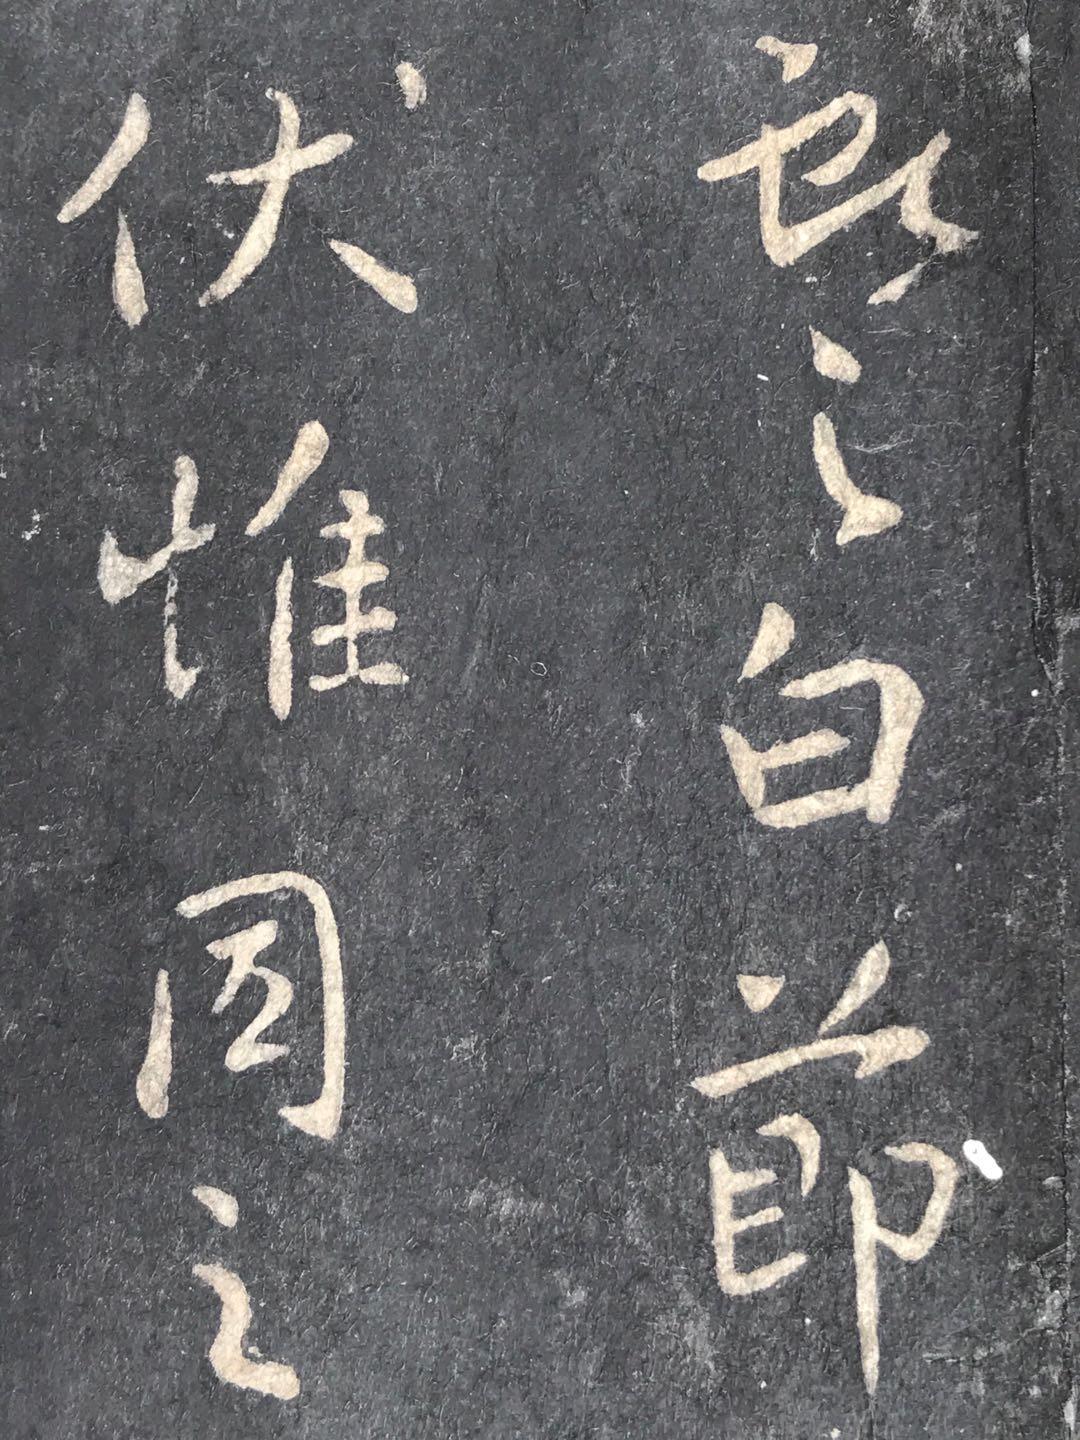 之白節
伏惟同之